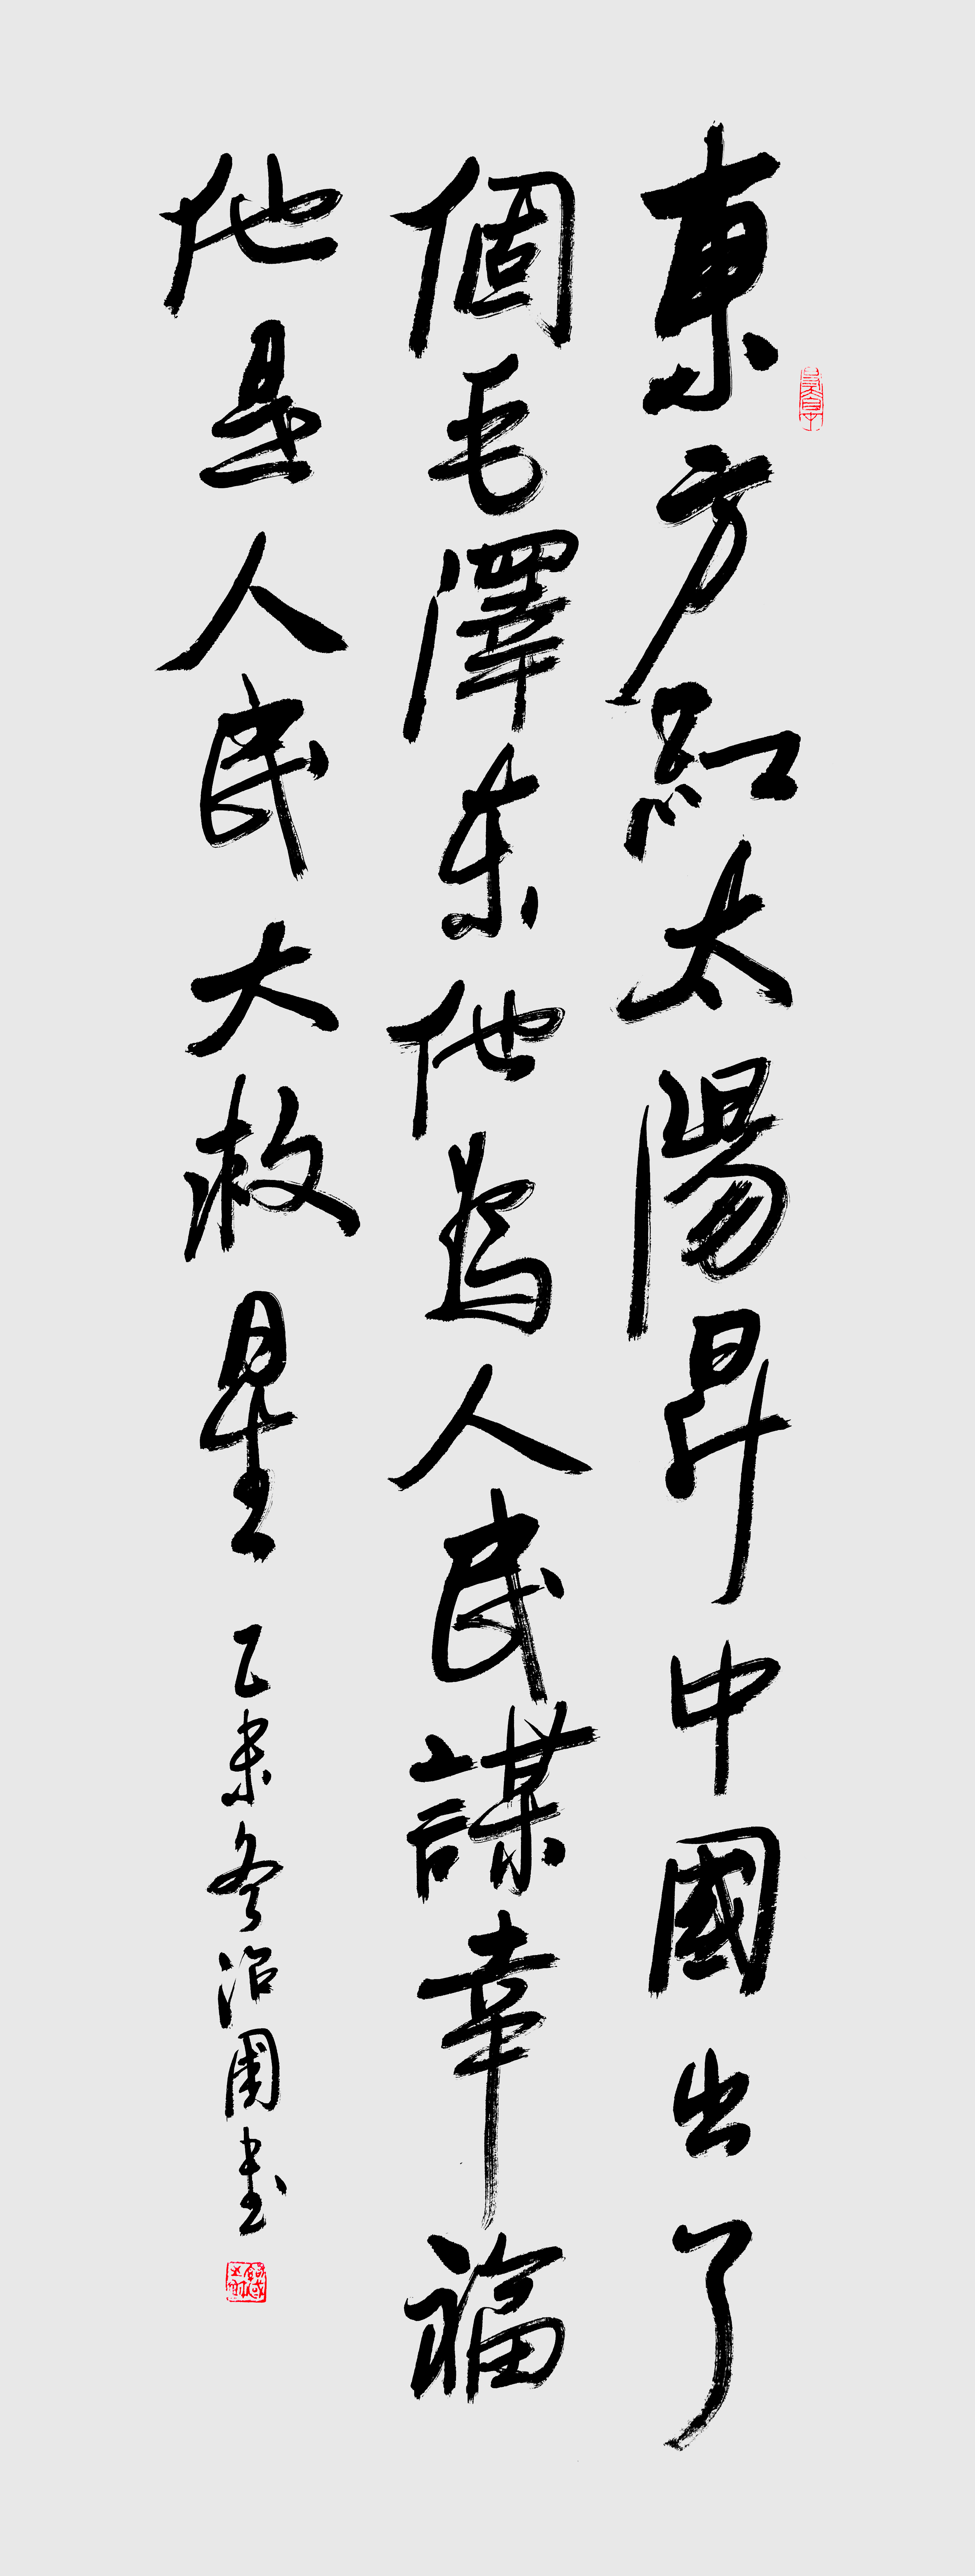 東方紅太陽昇中國出了
個毛澤东他為人民謀幸福
他是人民大救星
乙未冬治國书